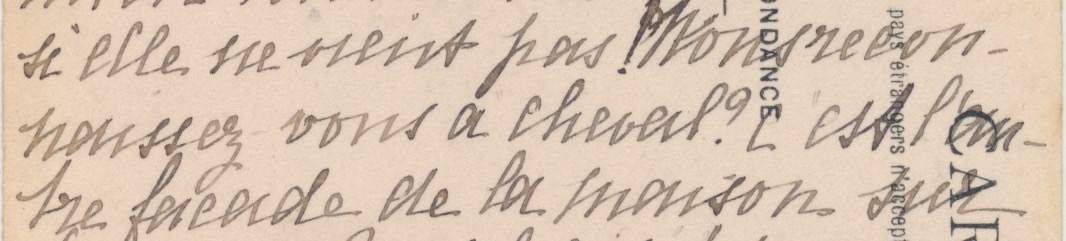 si elle ne vient pas! Vous recon-
naissez vous a cheval? C est l'au-
tre facade de la maison sur
ONDANCE
pays étrangers n'accept
CAR